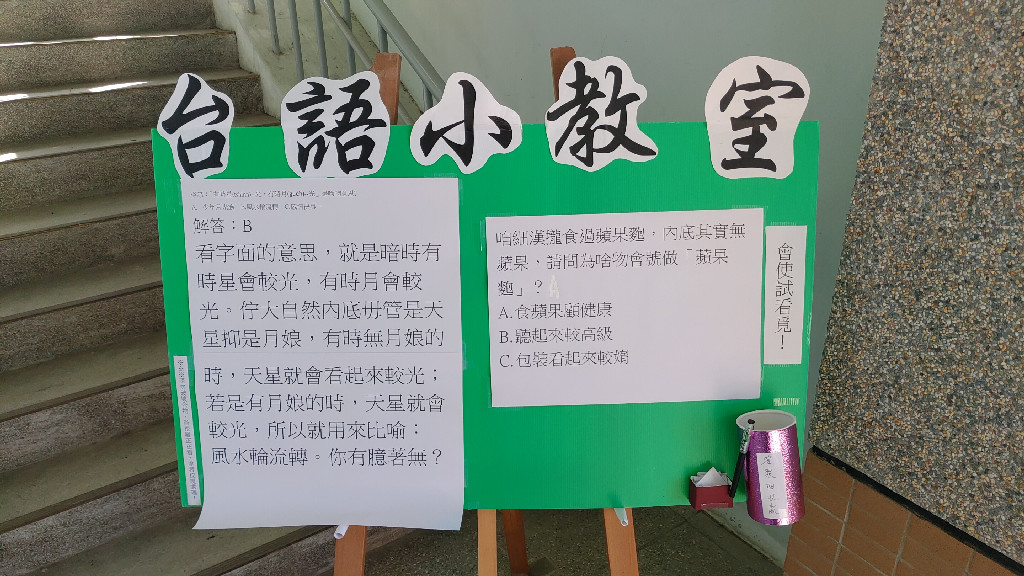 台語小教室
解答：B
看字面的意思，就是暗時有
時星會較光，有時月會較
光。佇大自然內底毋管是天
星抑是月娘，有時無月娘的
時，天星就會看起來較光；
若是有月娘的時，天星就會
較光，所以就用來比喻：
風水輪流轉。你有臆著無？
咱細漢攏食過蘋果麭，內底其實無
蘋果，請問為啥物會號做「蘋果
麭」？
A.食蘋果顧健康
B.聽起來較高級
C.包裝看起來較媠
會使試看覓！